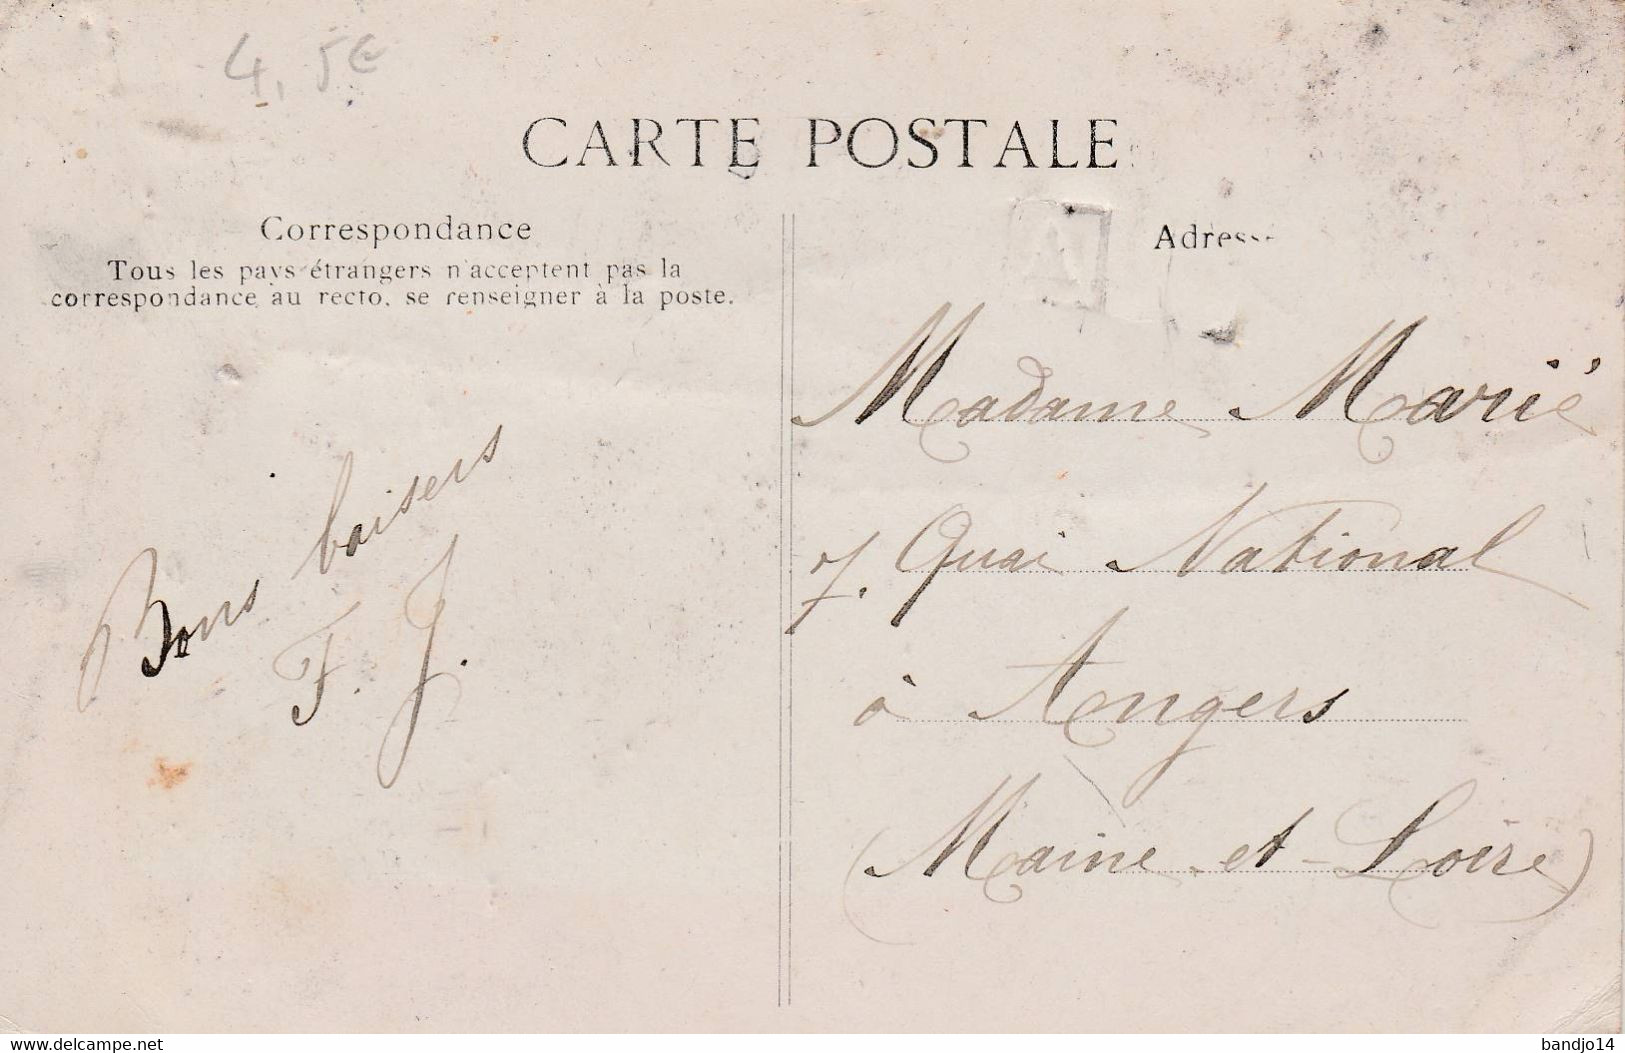 4,5€
CARTE POSTALE
Correspondance
Tous les pays étrangers n'acceptent pas la
correspondance au recto, se renseigner à la poste.
Bons baisers
F. J.
Adresse
Madame Marié
7. Quai National
à Angers
(Maine-et-Loire)
www.delcampe.net
bandjo14